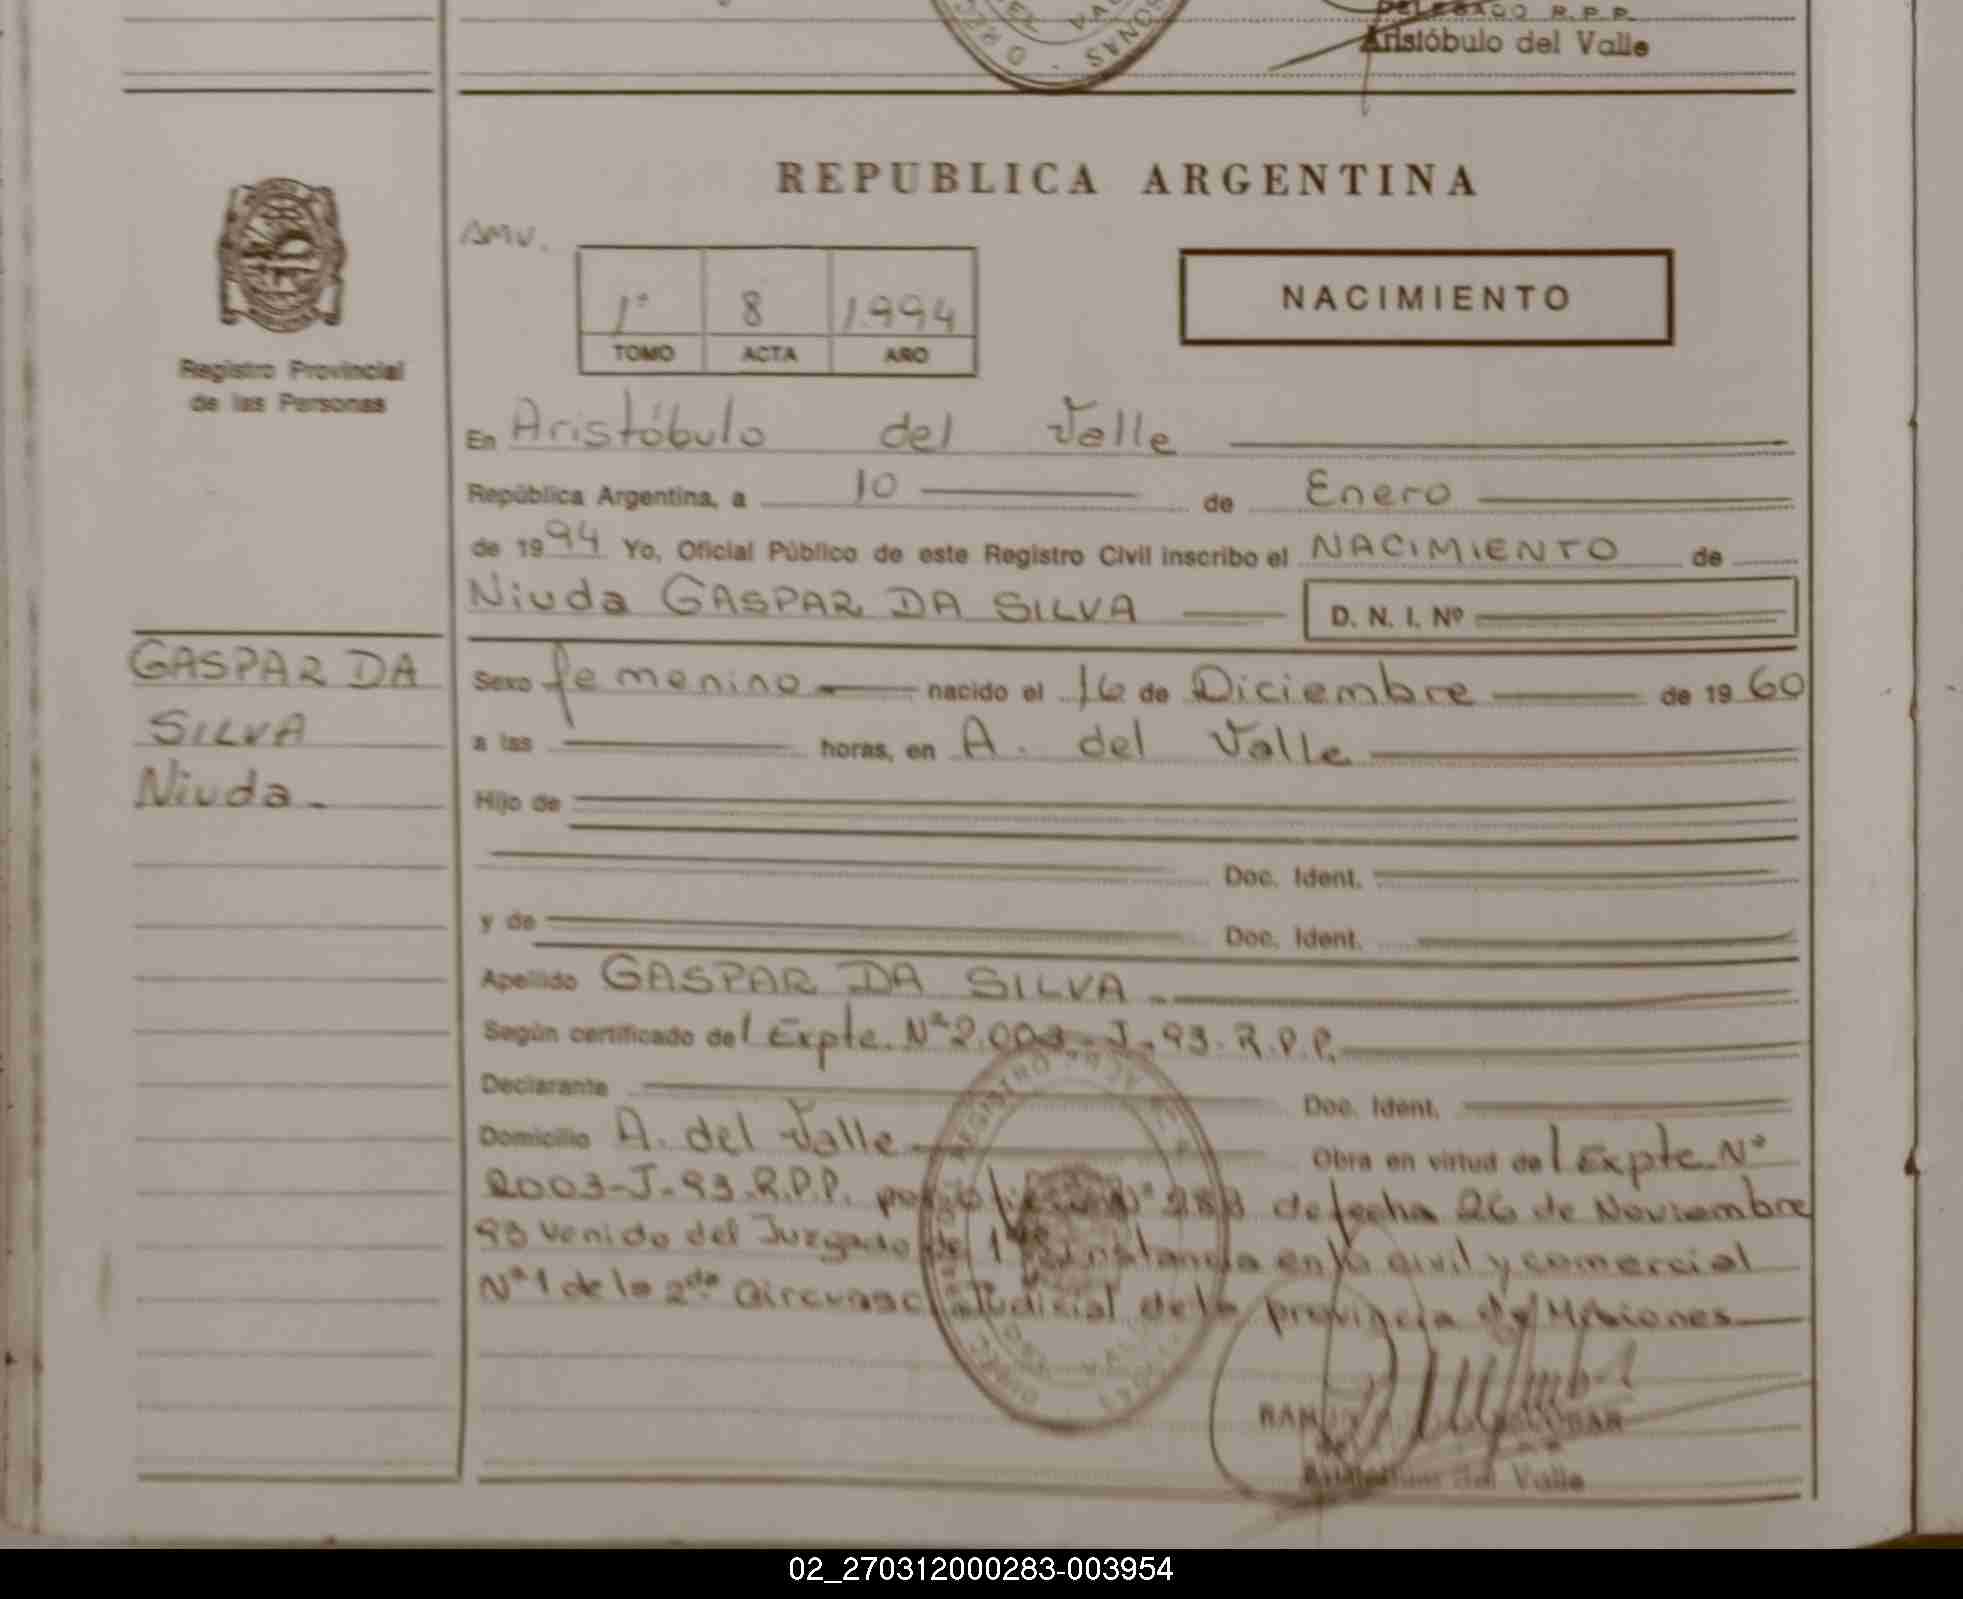 DELEGADO R.P.P.
Aristóbulo del Valle
REPUBLICA ARGENTINA
AMV.
NACIMIENTO
1º 8 1.994
TOMO ACTA AÑO
Registro Provincial
de las Personas
En Aristóbulo del Valle
República Argentina, a 10 de Enero
de 1994 Yo, Oficial Público de este Registro Civil inscribo el NACIMIENTO de
Niuda GASPAR DA SILVA D. N. I. Nº
GASPAR DA
SILVA
Niuda.
Sexo femenino nacido el 16 de Diciembre de 1960
a las horas, en A. del Valle
Hijo de
Doc. Ident.
y de Doc. Ident.
Apellido GASPAR DA SILVA
Según certificado del Expte. Nº 2.003-J-93.R.P.P.
Declarante Doc. Ident.
Domicilio A. del Valle Obra en virtud del Expte. Nº
2003-J-93.R.P.P. por Nº de fecha 26 de Noviembre
93 venido del Juzgado de 1ra instancia en lo civil y comercial
Nº 1 de la 2da Circunsc. Judicial de la provincia de Misiones
del Valle
02_270312000283-003954